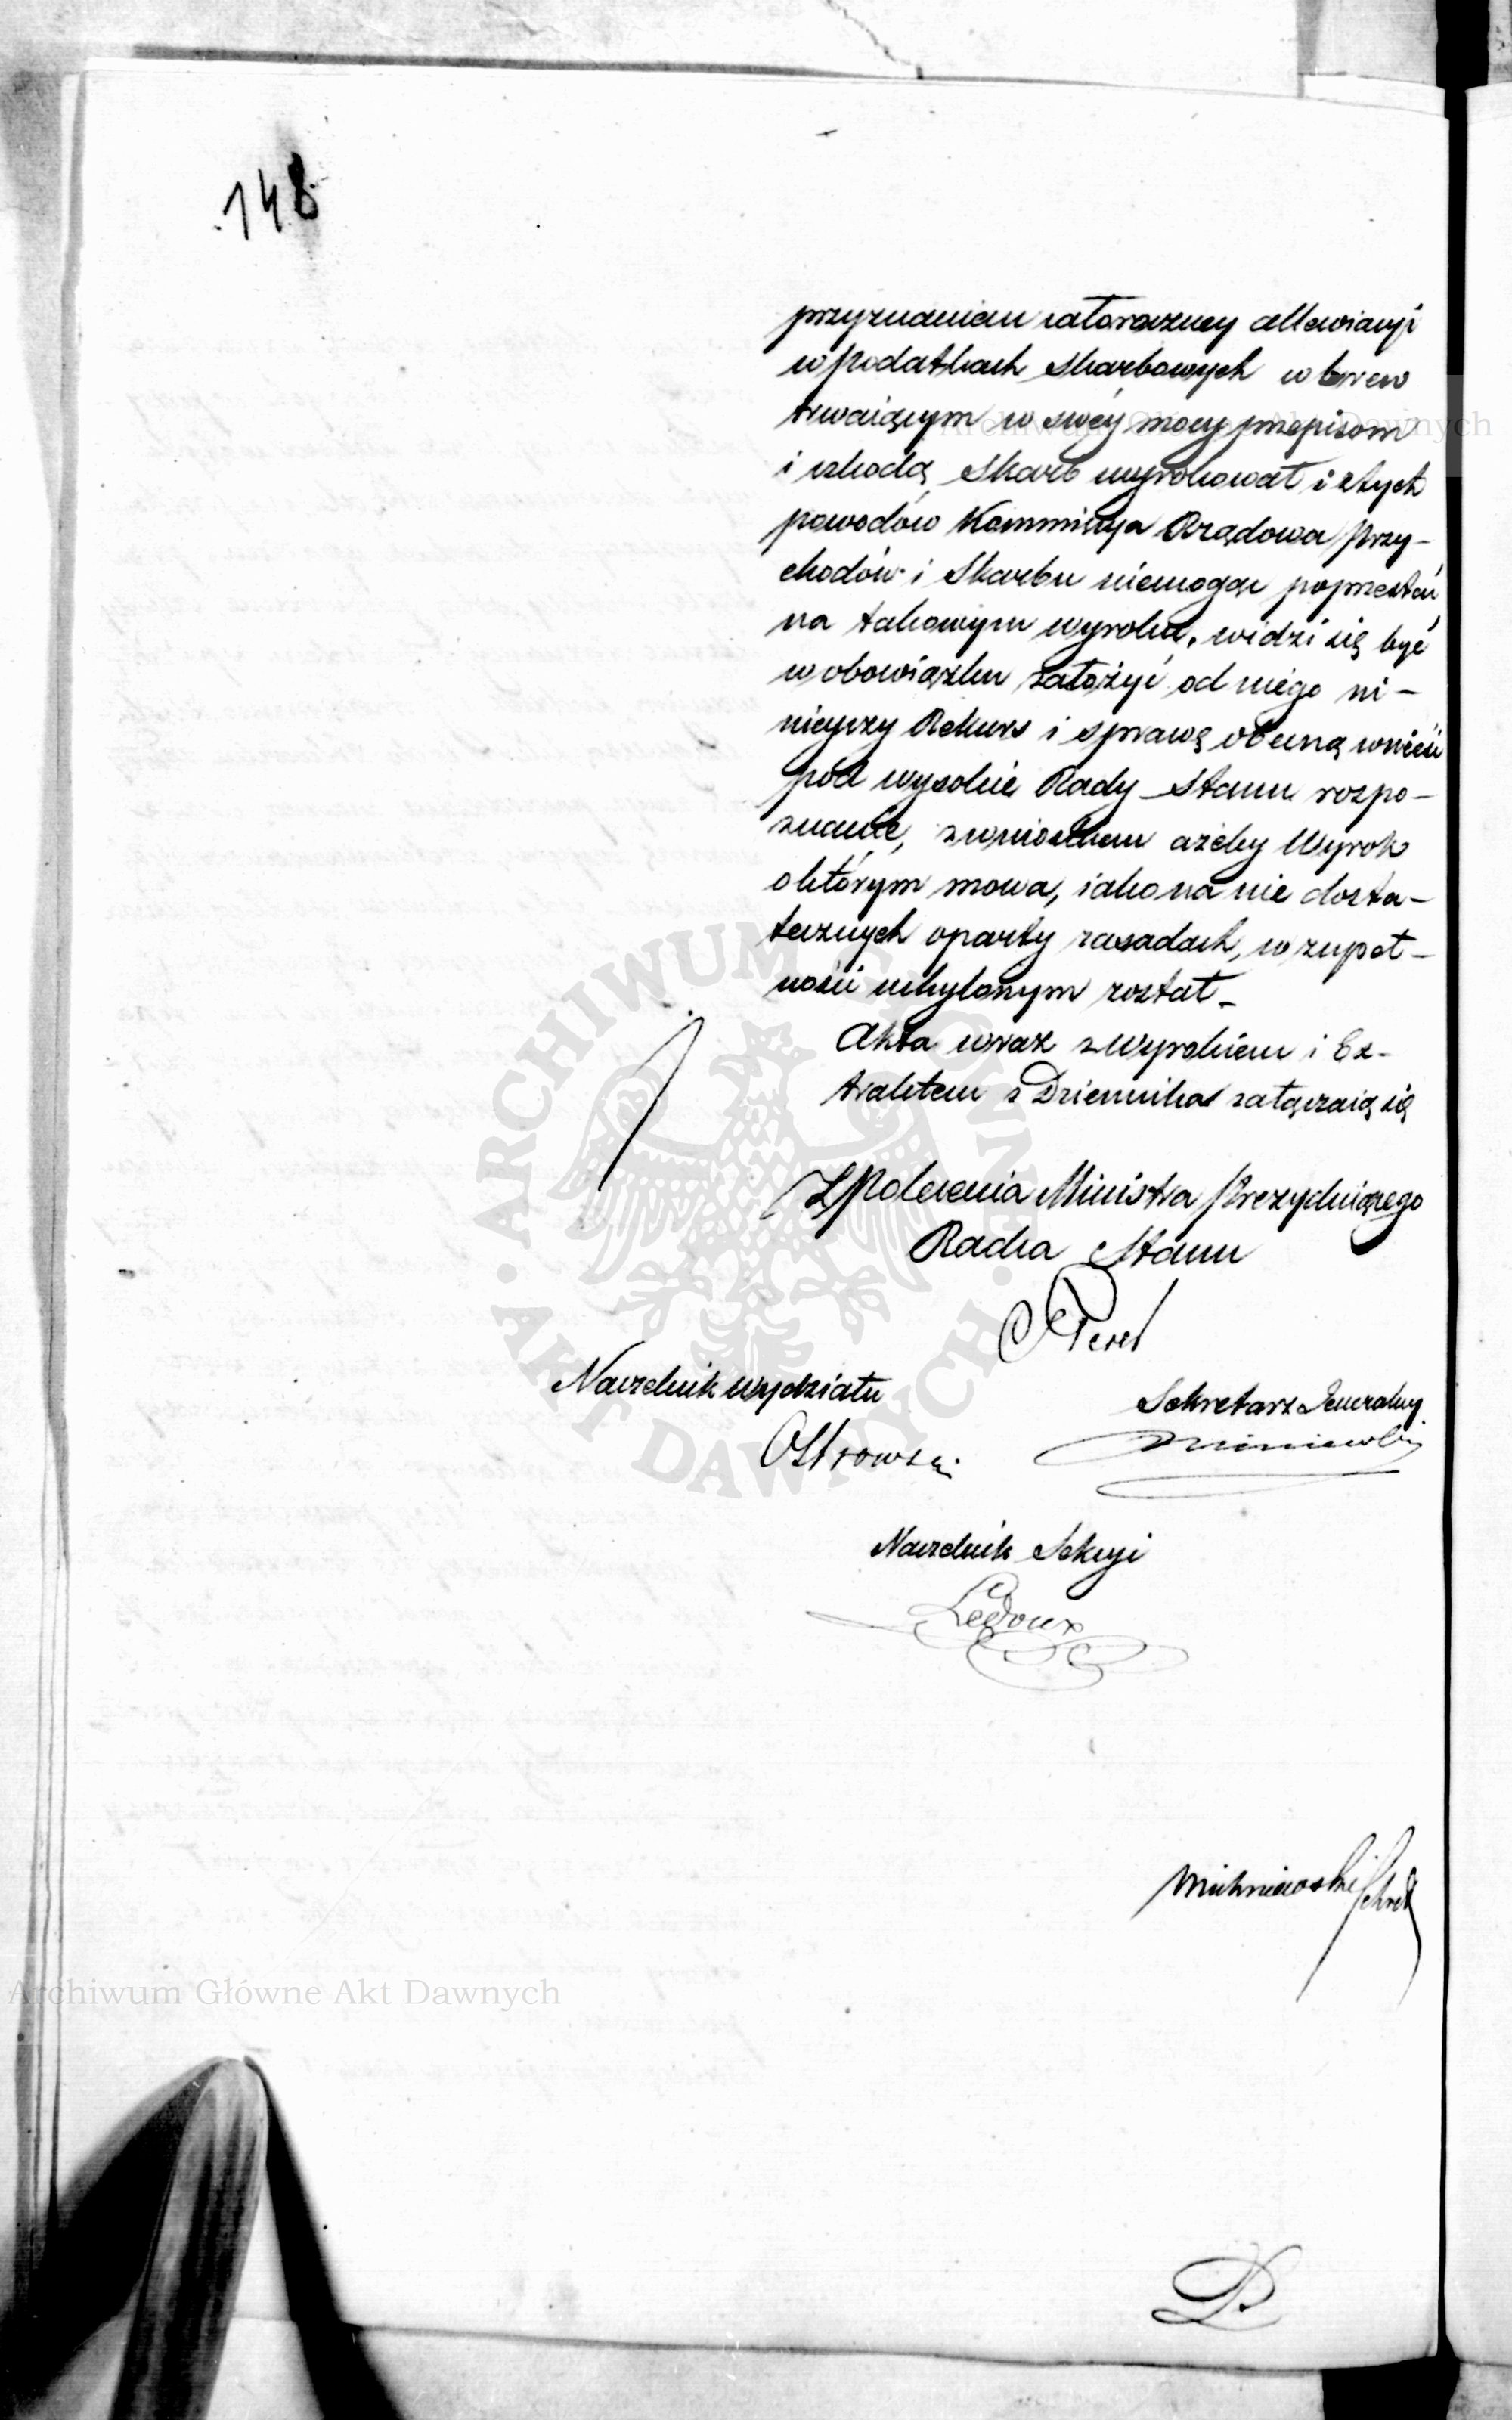 148
przyznaniem całoroczney allewiacyi
w podatkach Skarbowych wbrew
trwaiącym w swéy mocy przepisom
i szkodą Skarb wyrokował i z tych
powodów Kommissya Rządowa Przy-
chodów i Skarbu niemogąc poprzestać
na takowym wyroku, widzi się być
w obowiązku założyć od niego ni-
nieyszy Rekurs i sprawę obecną wnieść
pod wysokie Rady Stanu rozpo-
znanie, z wnioskiem ażeby Wyrok
o którym mowa, iako na nie dosta-
tecznych oparty zasadach, w zupeł-
ności uchylonym został_
Akta wraz z wyrokiem i Ex-
traktem z Dziennika załączaią się
Z Polecenia Ministra Prezyduiącego
Radca Stanu
Naczelnik wydziału
Sekretarz Jeneralny
Ostrowski
Naczelnik Sekcyi
Ledoux
Archiwum Główne Akt Dawnych
Archiwum Główne Akt Dawnych
ARCHIWUM GŁÓWNE AKT DAWNYCH